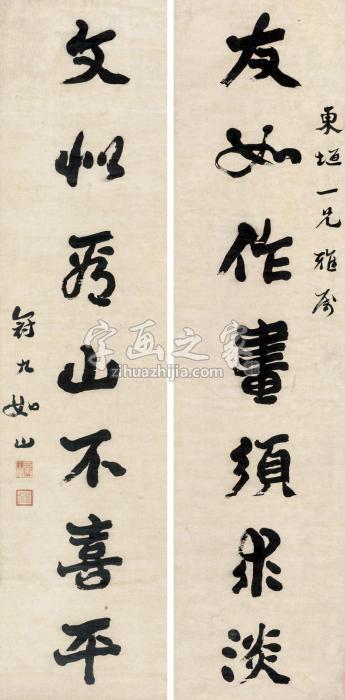 東垣一兄雅属
友如作畫須求淡
文似看山不喜平
冠九如山
字画之家
zihuazhijia.com